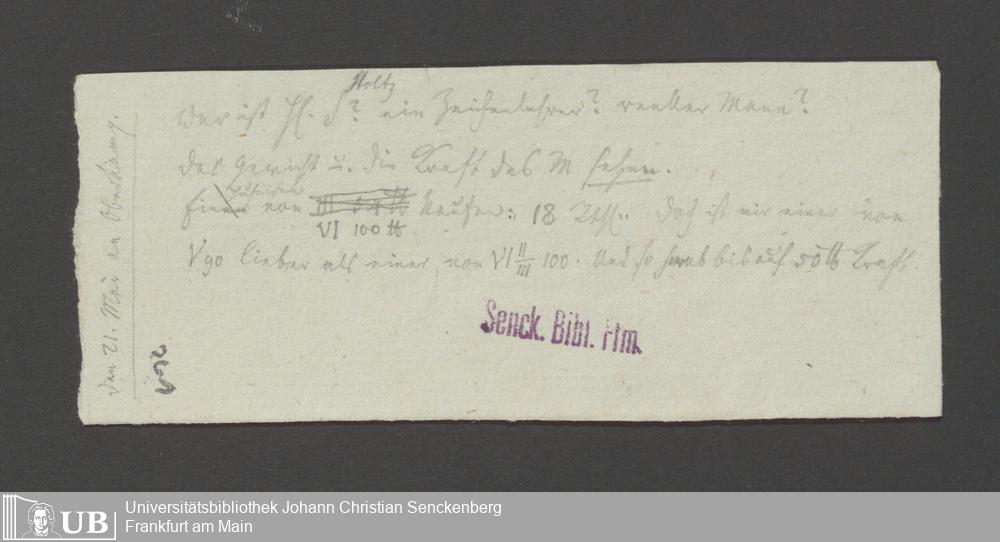 Den 21. Mai an Oberkamp.
Holtz
Wer ist H. S? ein Zeichenlehrer? reeller Mann?
Das Gewicht u. die Kraft des M sehen.
von kaufen: 18 Doch ist mir einer von
VI 100 ℔
V 90 lieber als einer von VI II/III 100. Und so herab bis auf 50 ℔ Kraft
Senck. Bibl. Ffm.
Universitätsbibliothek Johann Christian Senckenberg
Frankfurt am Main
UB